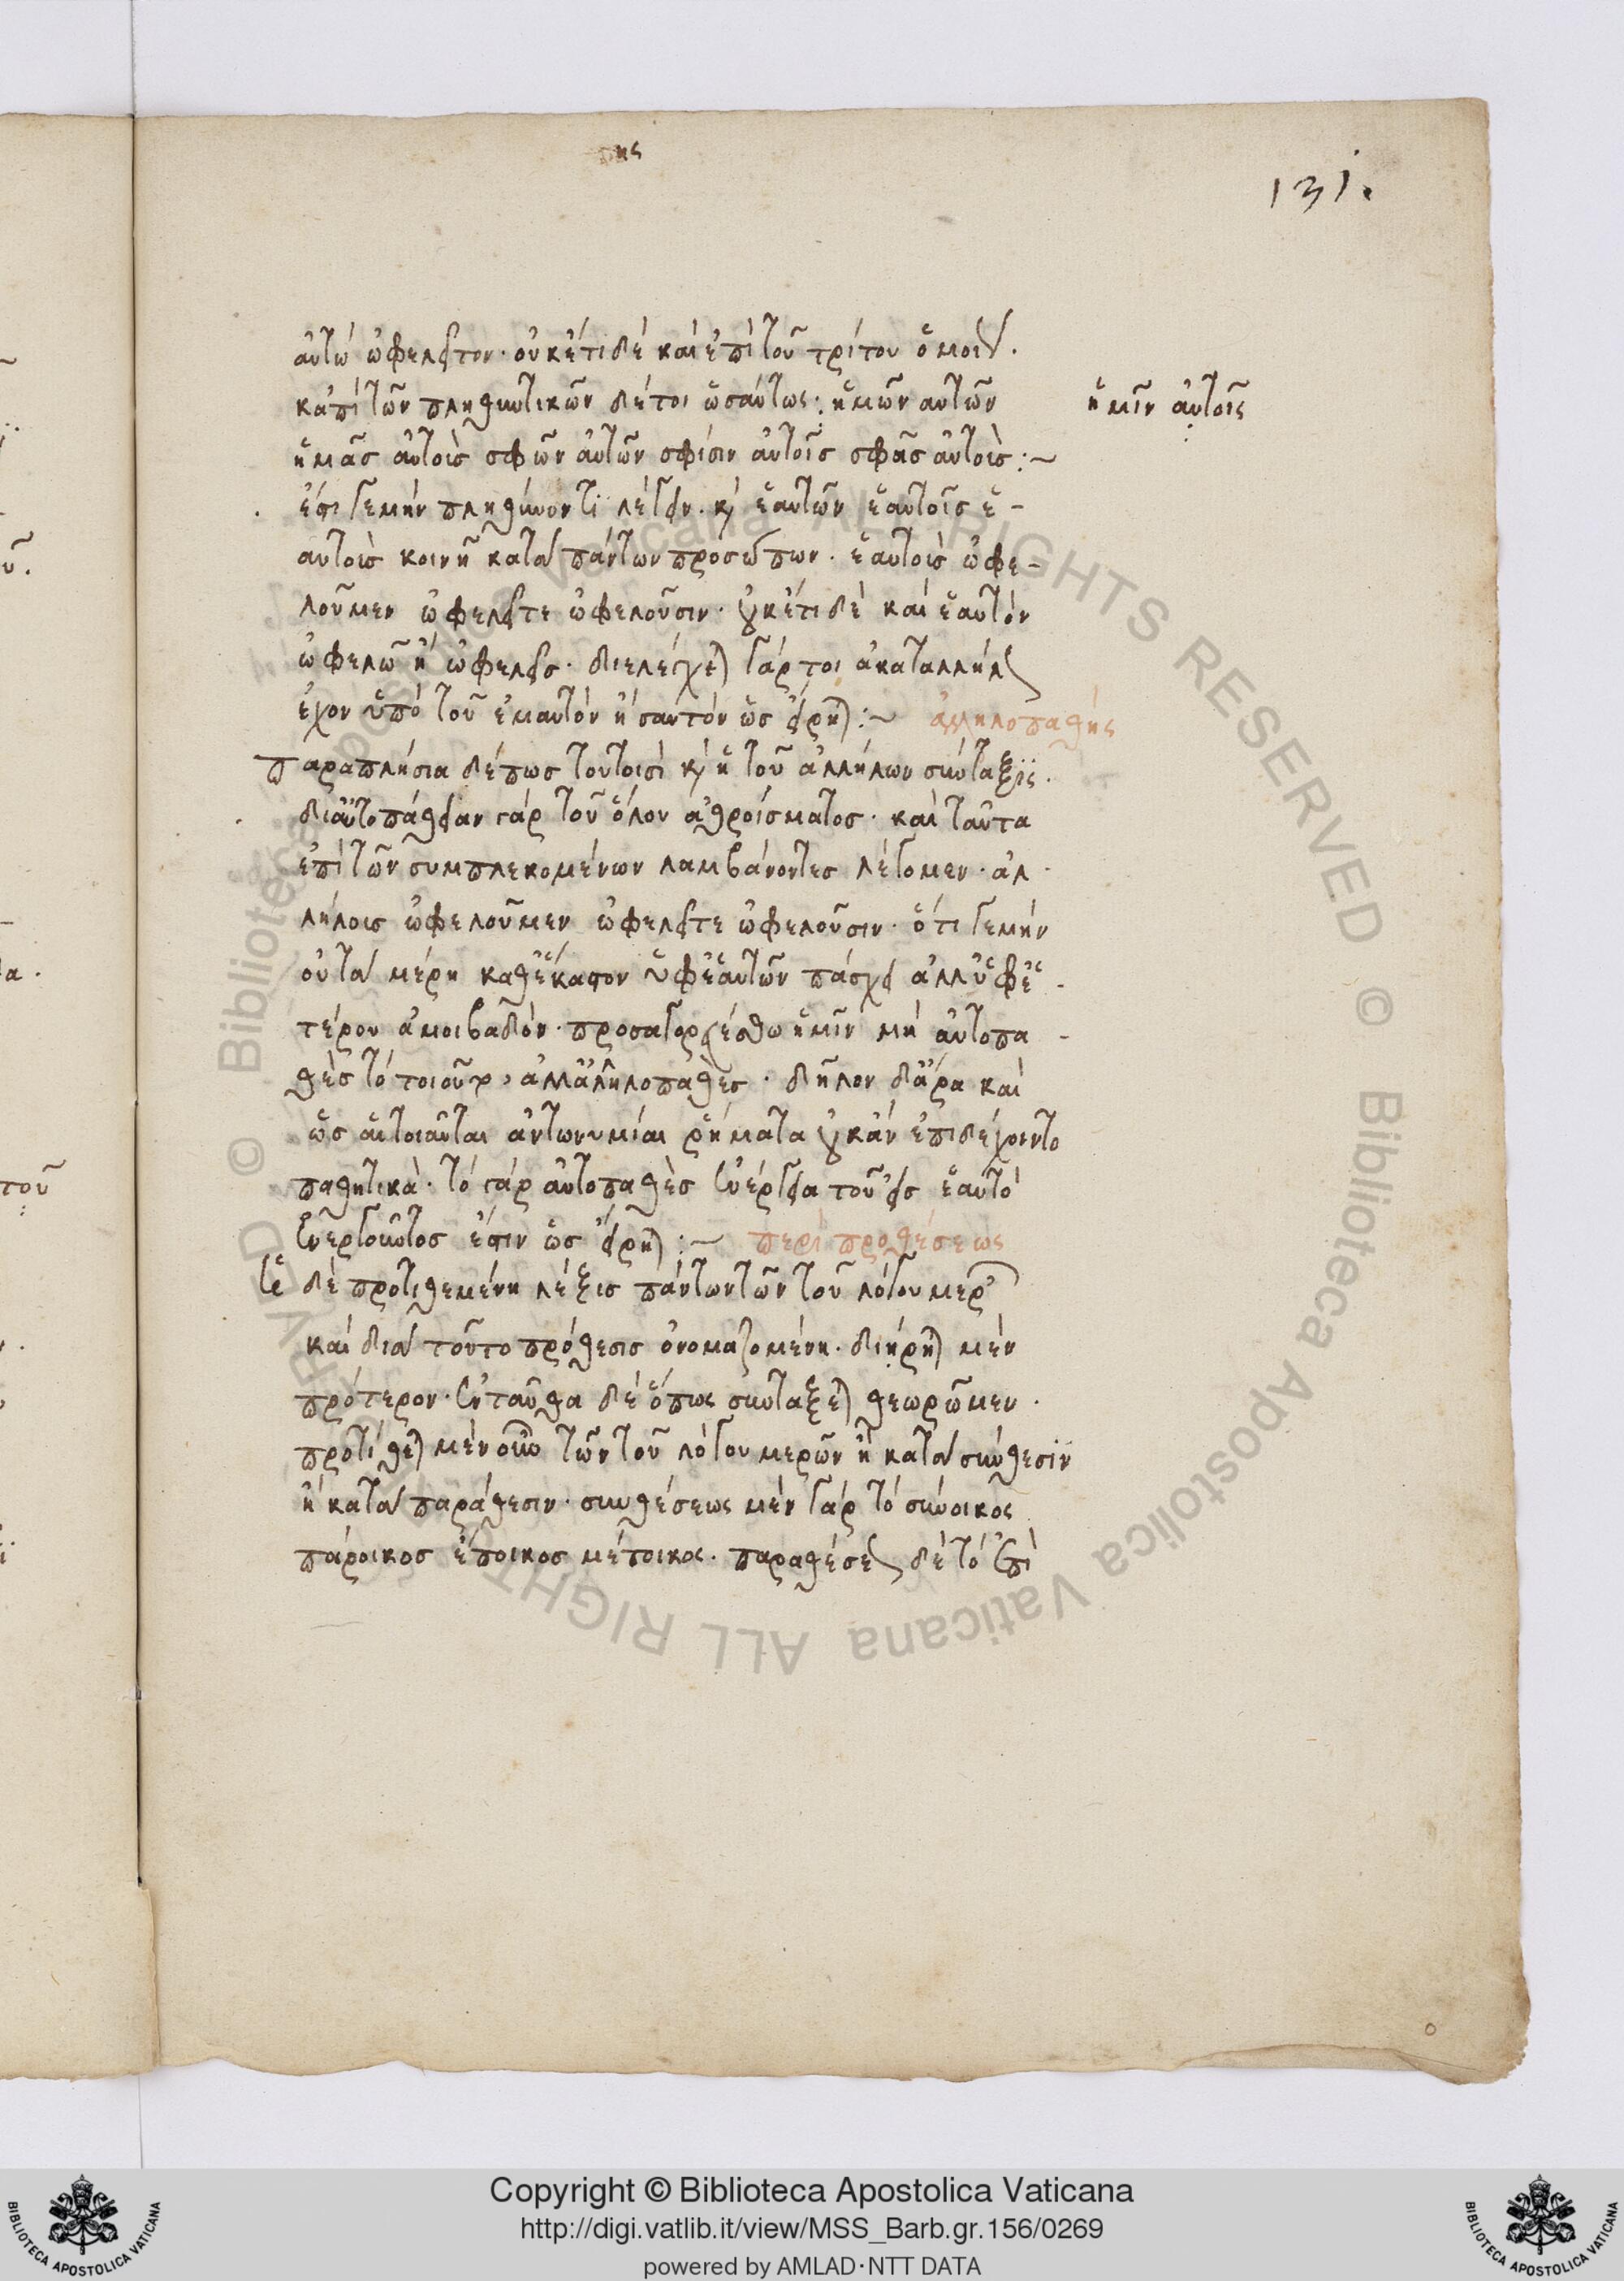 131.
αὐτὼ ὠφελεῖτον· οὐκέτι δὲ καὶ ἐπὶ τοῦ τρίτου ὁμοίως.
κἀπὶ τῶν πληθυντικῶν δέ τοι ὡσαύτως· ἡμῶν αὐτῶν
ἡμῖν αὐτοῖς
ἡμᾶς αὐτοὺς σφῶν αὐτῶν σφίσιν αὐτοῖς σφᾶς αὐτούς:~
ἔστι γε μὴν πληθύνοντι λέγειν· καὶ ἑαυτῶν ἑαυτοῖς ἑ-
αυτοὺς κοινῇ κατὰ πάντων προσώπων· ἑαυτοὺς ὠφε-
λοῦμεν ὠφελεῖτε ὠφελοῦσιν· οὐκέτι δὲ καὶ ἑαυτὸν
ὠφελῶ ἢ ὠφελεῖς· διελέγχεται γάρ τοι ἀκαταλλήλως
ἔχον ὑπὸ τοῦ ἐμαυτὸν ἢ σαυτὸν ὡς εἴρηται:~ ἀλληλοπαθής
παραπλήσια δέ πως τουτοισὶ καὶ ἡ τοῦ ἀλλήλων σύνταξις.
δι αὐτοπάθειαν γὰρ τοῦ ὅλου ἀθροίσματος· καὶ ταῦτα
ἐπὶ τῶν συμπλεκομένων λαμβάνοντες λέγομεν· ἀλ-
λήλοις ὠφελοῦμεν ὠφελεῖτε ὠφελοῦσιν· ὅτι γε μὴν
οὐ τὰ μέρη καθ ἕκαστον ὑφ ἑαυτῶν πάσχει ἀλλ ὑφ ἑ-
τέρου ἀμοιβαδόν· προσαγορευέσθω ἡμῖν μὴ αὐτοπα-
θὲς τὸ τοιοῦτον, ἀλλ ἀλληλοπαθές· δῆλον δ ἄρα καὶ
ὡς αἱ τοιαῦται ἀντωνυμίαι ῥήματα οὐκ ἂν ἐπιδέχοιντο
παθητικά· τὸ γὰρ αὐτοπαθὲς ἐνέργεια τοῦ εἰς ἑαυτὸ
ἐνεργοῦντος ἐστὶν ὡς εἴρηται:~ περὶ προθέσεως
Ἡ δὲ προτιθεμένη λέξις πάντων τῶν τοῦ λόγου μερῶν
καὶ διὰ τοῦτο πρόθεσις ὀνομαζομένη· διῄρηται μὲν
πρότερον· ἐνταῦθα δὲ ὅπως συντάξεται θεωρῶμεν·
προτίθεται μὲν οὖν τῶν τοῦ λόγου μερῶν ἢ κατὰ σύνθεσιν
ἢ κατὰ παράθεσιν· συνθέσεως μὲν γὰρ τὸ σύνοικος
πάροικος ἔποικος μέτοικος· παραθέσεως δὲ τὸ ἐπὶ
Copyright © Biblioteca Apostolica Vaticana
http://digi.vatlib.it/view/MSS_Barb.gr.156/0269
powered by AMLAD·NTT DATA